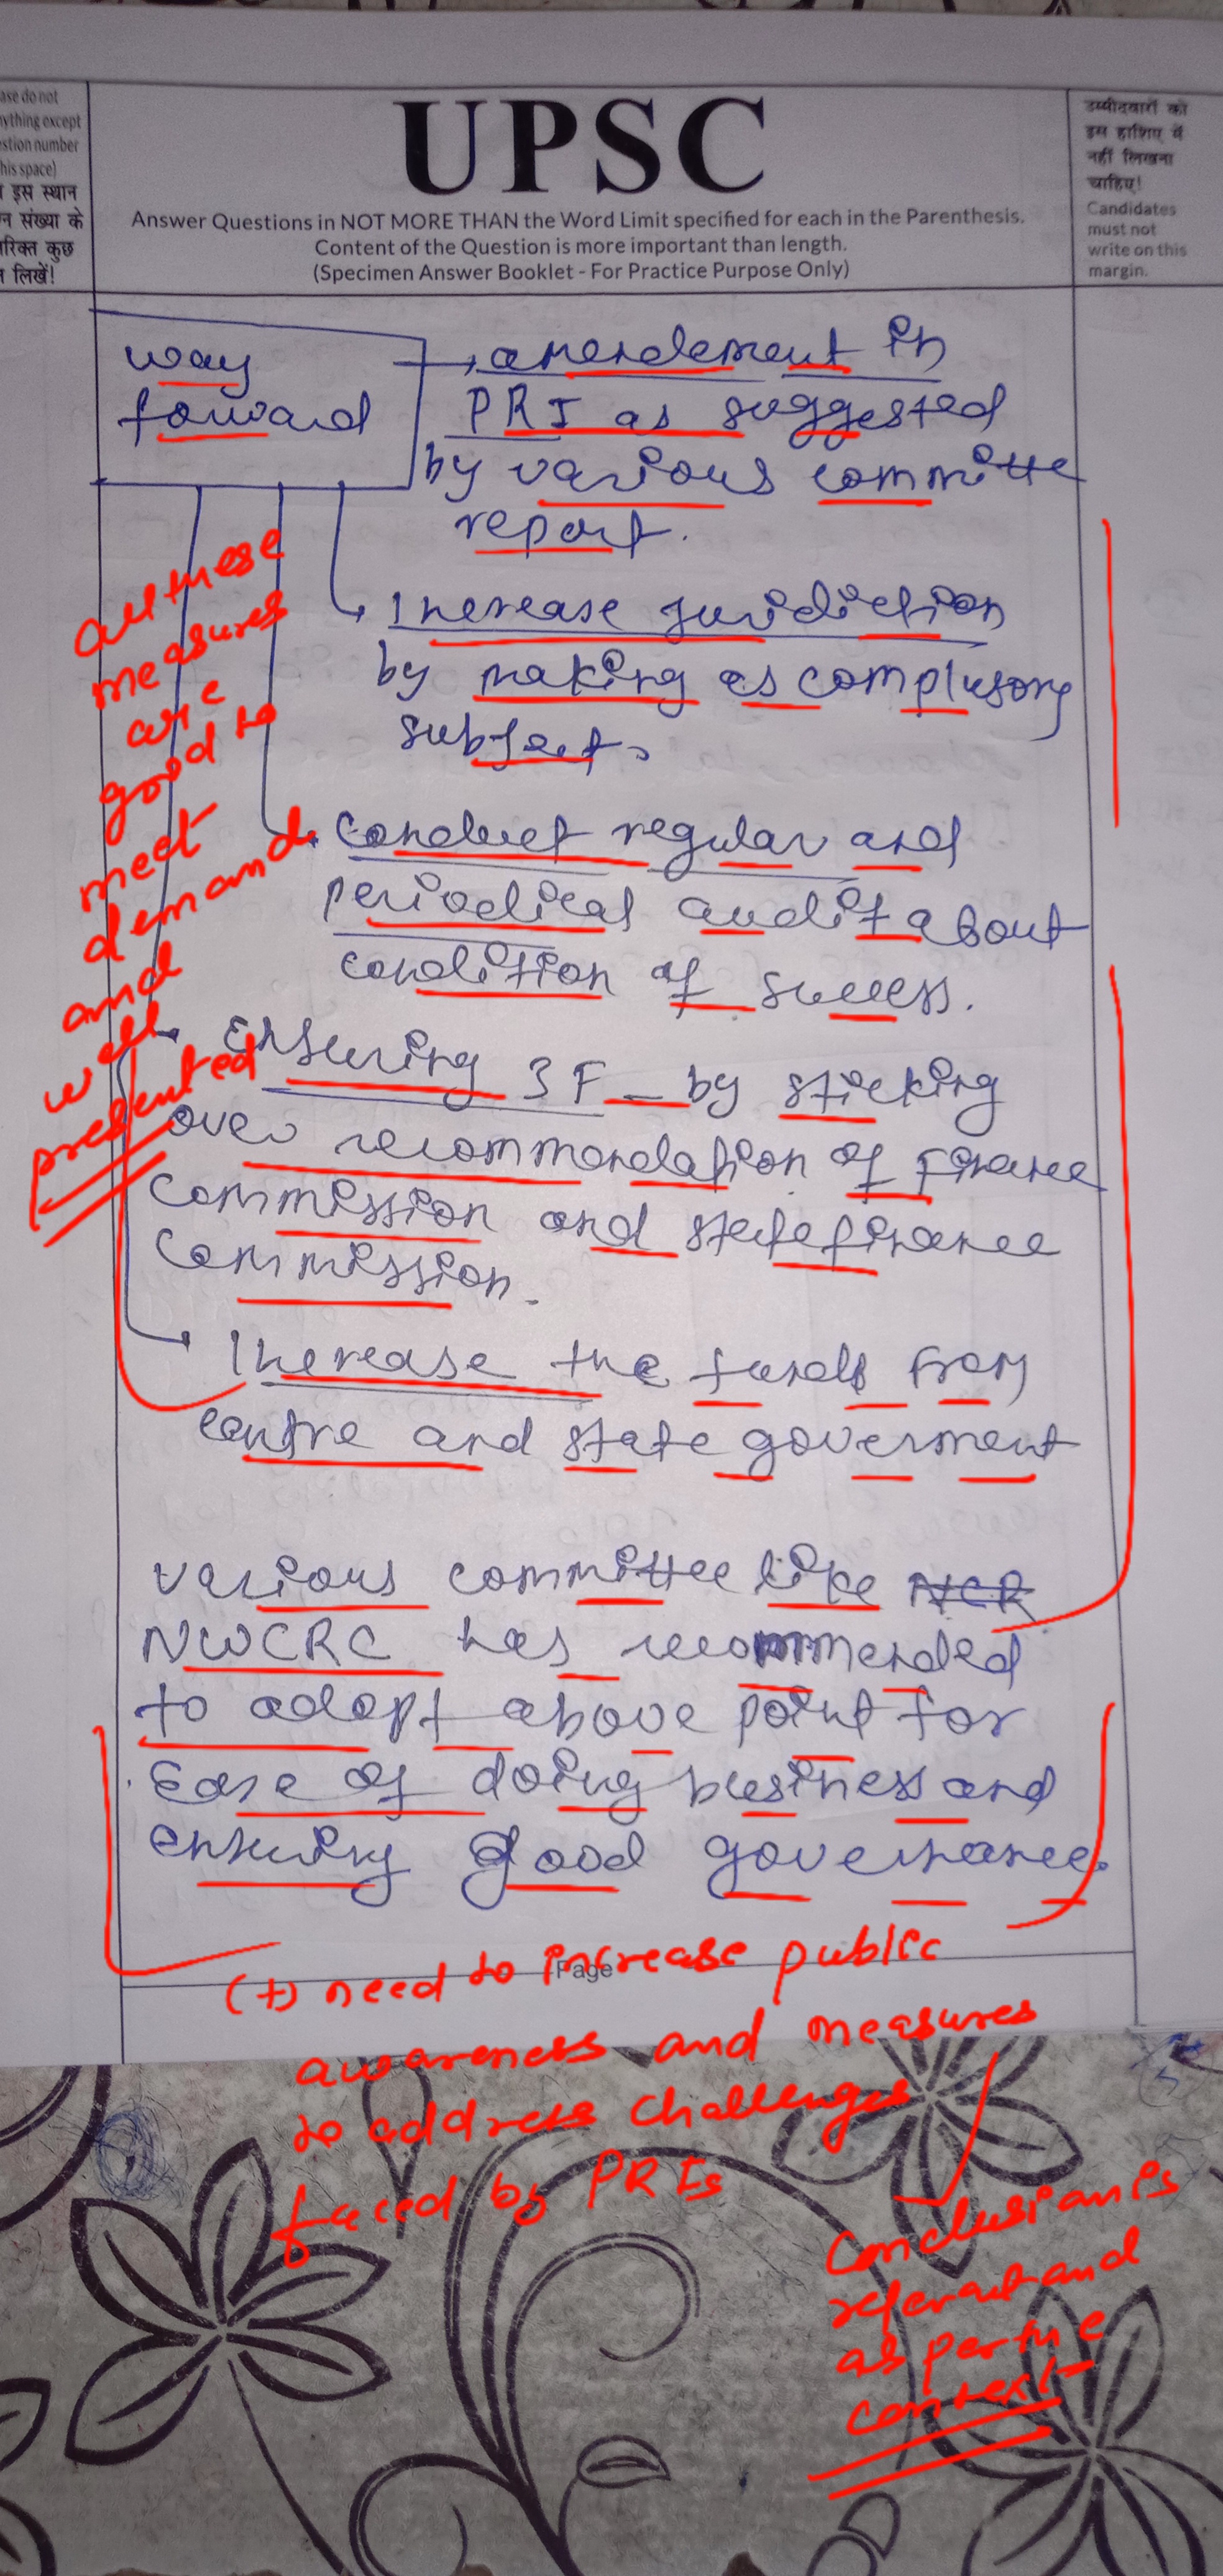 ase do not
nything except
estion number
his space)
इस स्थान
न संख्या के
रिक्त कुछ
न लिखें!
UPSC
Answer Questions in NOT MORE THAN the Word Limit specified for each in the Parenthesis.
Content of the Question is more important than length.
(Specimen Answer Booklet - For Practice Purpose Only)
उम्मीदवारों को
इस हाशिए में
नहीं लिखना
चाहिए!
Candidates
must not
write on this
margin.
way
forward
→ amendement in
PRI as suggested
by various committe
report.
Increase juridiction
by making as complusory
subject.
conduct regular and
periodical audit about
condition of success.
Ensuring 3F by sticking
over recommendation of Finance
Commission and state finance
Commission.
Increase the funds from
centre and state goverment
all these
measures
are
good to
meet
demand
and
well
presented
various committee like NCR
NWCRC has recommended
to adopt above point for
Ease of doing business and
ensuring good governance.
Page
(+) need to increase public
awareness and measures
to address challenges
faced by PRIs
Conclusion is
relevant and
as per the
context